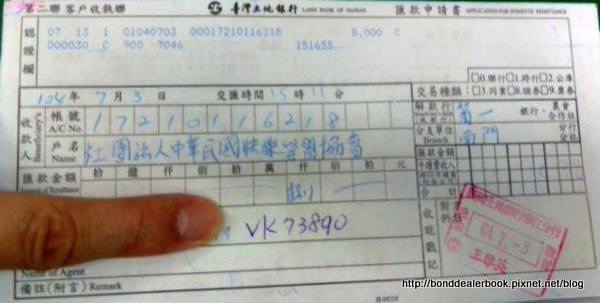 第二聯客戶收執聯 臺灣土地銀行 LAND BANK OF TAIWAN 匯款申請書 APPLICATION FOR DOMESTIC REMITTANCE
認證欄
07 13 1 01040703 00017210116218 8,000 C
000030 C 900 7046 151655
□0.聯行□1.跨行□2.公庫
交易種類:□3.同業□8.證券□9.票券
104年7月3日 交匯時間15時11分
解款行 第一 銀行、農會 合作社
分支單位 Branch 南門 分行 分社
收款人 Beneficiary's
帳號 A/C No. 17210116218
戶名 Name 社團法人中華民國快樂學習協會
匯款金額
拾億仟佰拾萬仟佰拾元
匯款金額
手續費收入
合計
VK73890
收款戳記
04.7.-3
Name of Agent
備註(附言) Remark
http://bonddealerbook.pixnet.net/blog